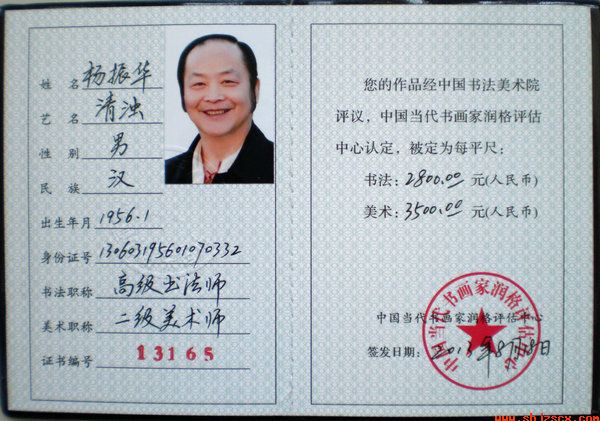 姓 名 杨振华
艺 名 清浊
性 别 男
民 族 汉
出生年月 1956.1
身份证号 130603195601070332
书法职称 高级书法师
美术职称 二级美术师
证书编号 13165
您的作品经中国书法美术院
评议，中国当代书画家润格评估
中心认定，被定为每平尺：
书法：2800.00 元(人民币)
美术：3500.00 元(人民币)
中国当代书画家润格评估中心
中国当代书画家润格评估中心
签发日期：2013年8月8日
www.shjzscx.com